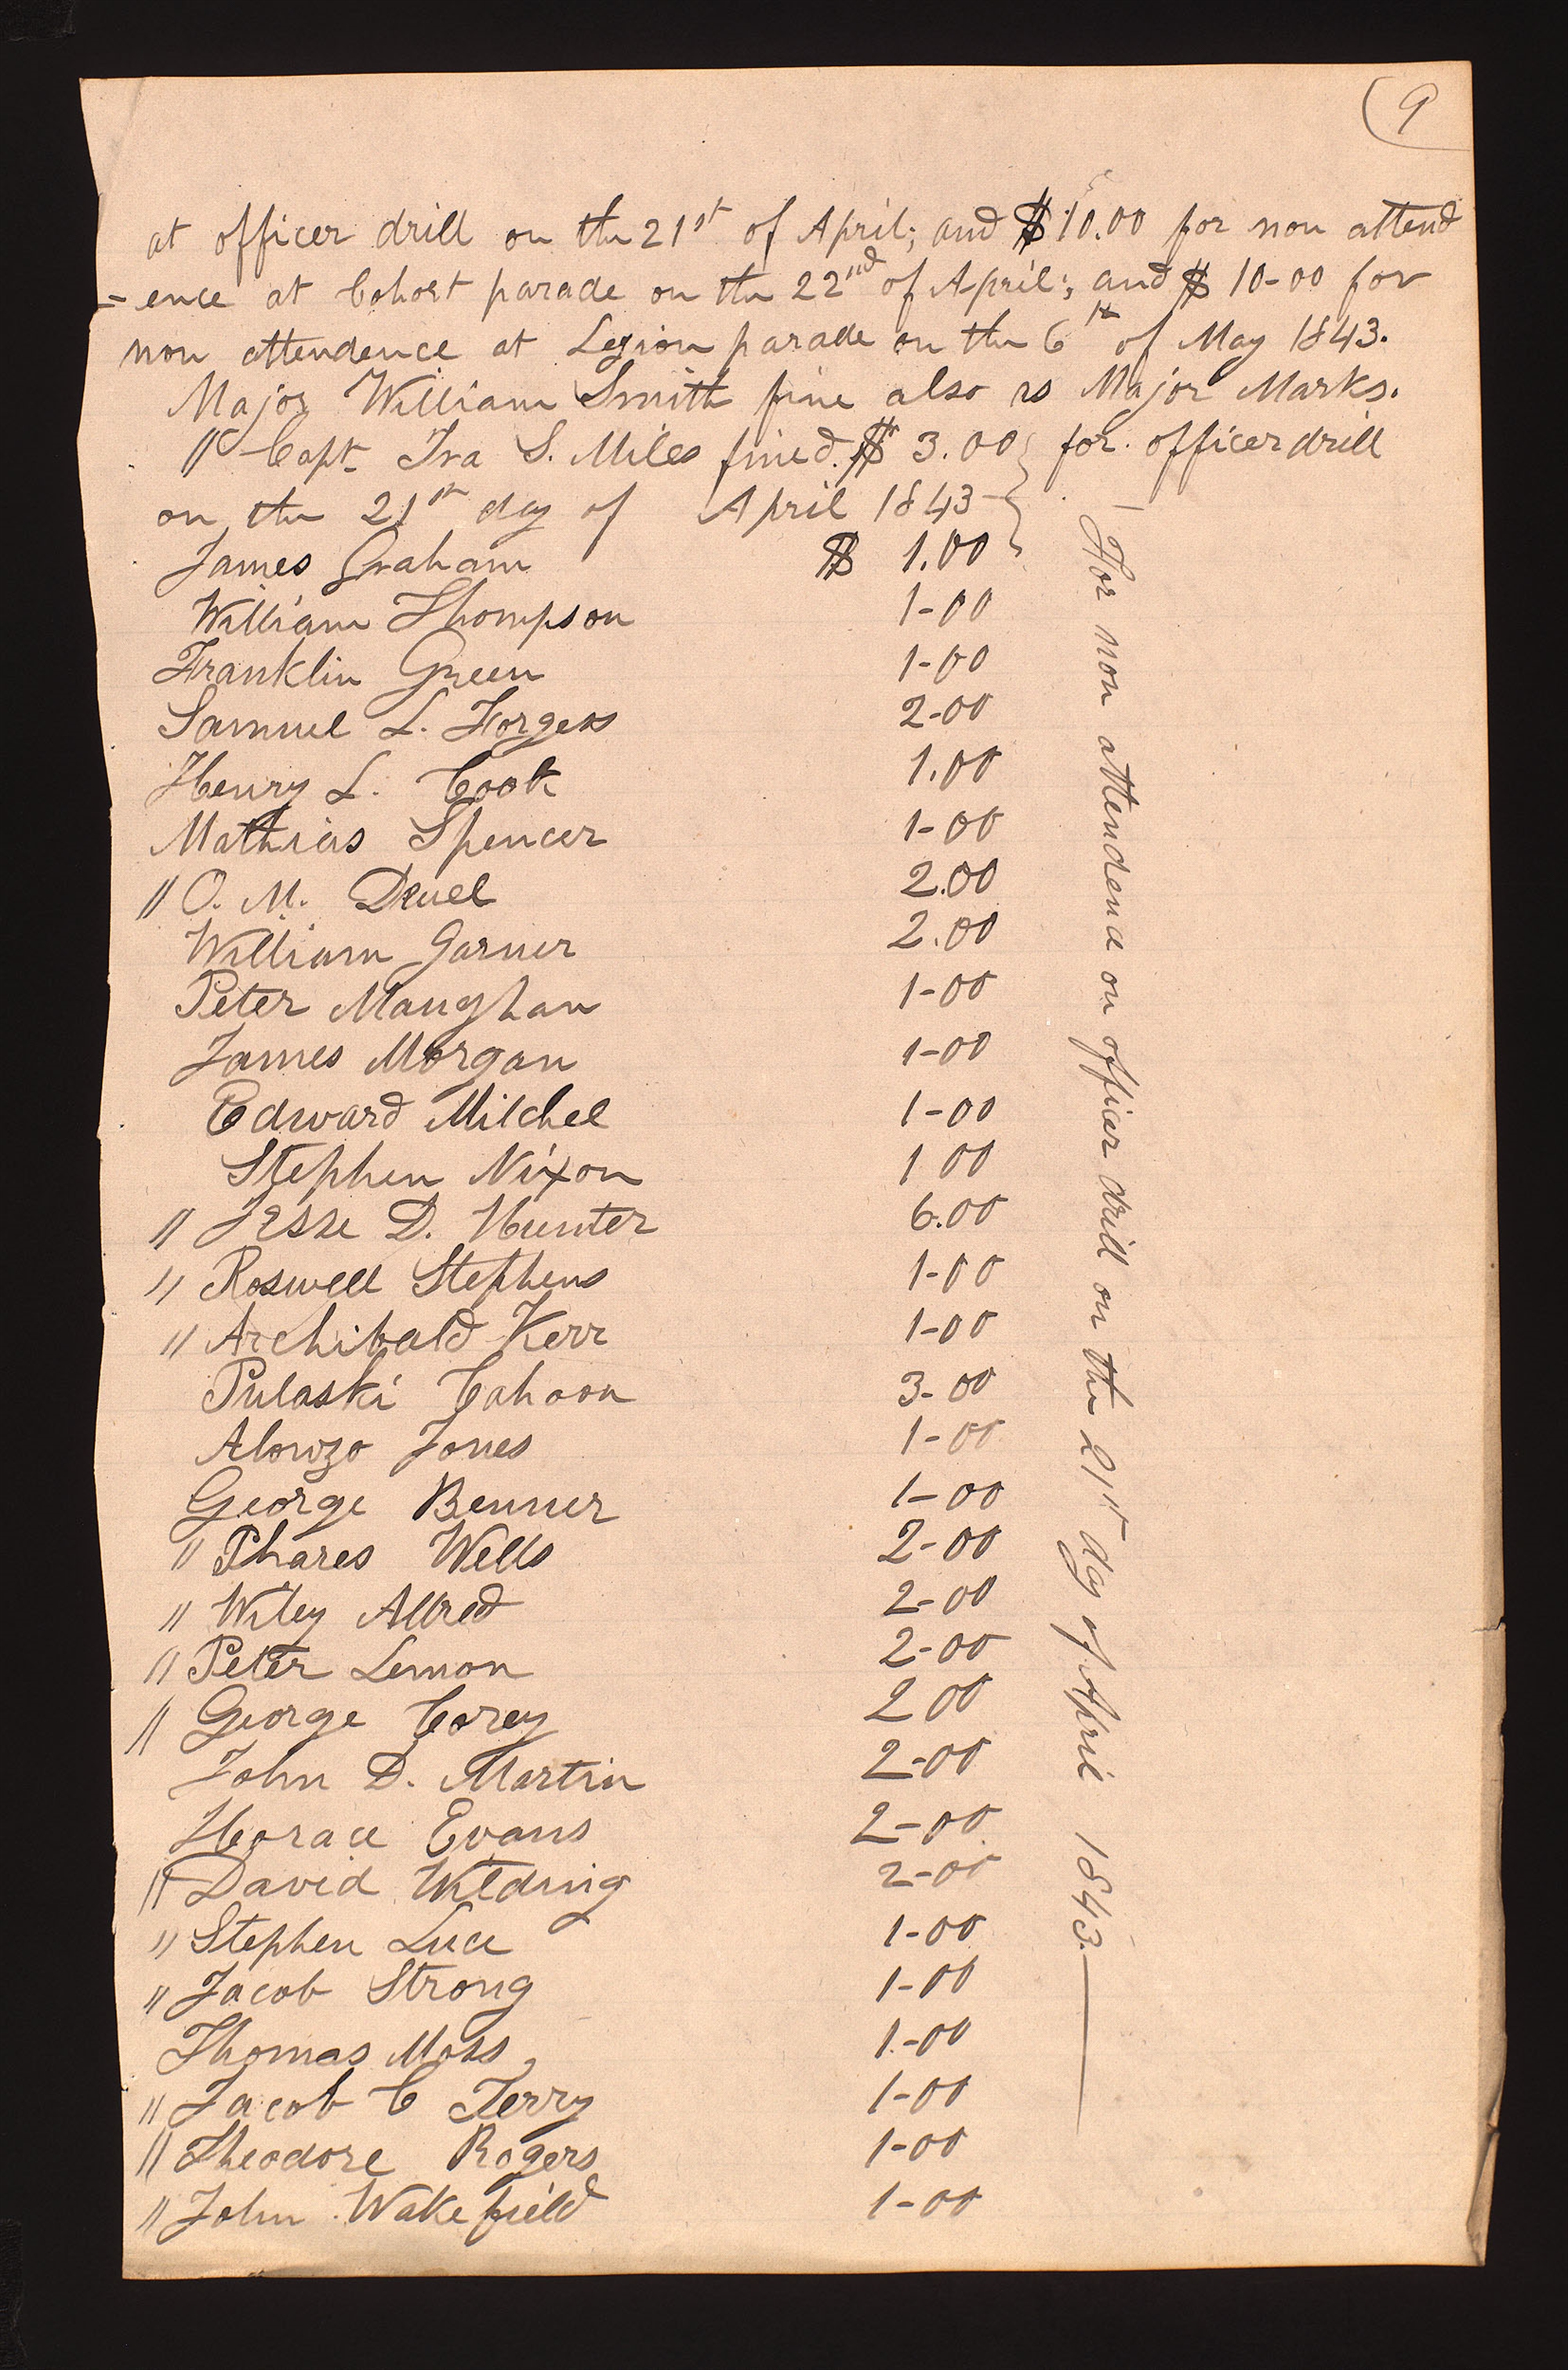 9
at officer drill on the 21st of April; and $10.00 for non attend
=ence at Cohort parade on the 22nd of April; and $ 10-00 for
non attendence at Legion parade on the 6th of May 1843.
Major William Smith fine also as Major Marks.
" Capt Ira S. Miles fined $ 3.00 for officer drill
on the 21st day of April 1843-
James Graham $ 1.00
William Thompson 1-00
Franklin Green 1-00
Samuel L. Forgess 2-00
Henry L. Cook 1.00
Mathias Spencer 1-00
" O. M. Deuel 2.00
William Garner 2.00
Peter Maughan 1-00
James Morgan 1-00
Edward Milchel 1-00
Stephen Nixon 1 00
" Jesse D. Hunter 6.00
" Roswell Stephens 1-00
" Archibald Kerr 1-00
Pulaski Cahoon 3-00
Alonzo Jones 1-00
George Benner 1-00
" Phares Wells 2-00
" Wiley Allred 2-00
" Peter Lemon 2-00
" George Corey 2 00
John D. Martin 2-00
Horace Evans 2-00
" David Wilding 2-00
" Stephen Luce 1-00
" Jacob Strong 1-00
Thomas Moss 1-00
" Jacob C Terry 1-00
" Theodore Rogers 1-00
" John Wakefield 1-00
For non attendend on officer drill on the 21st day of April 1843.